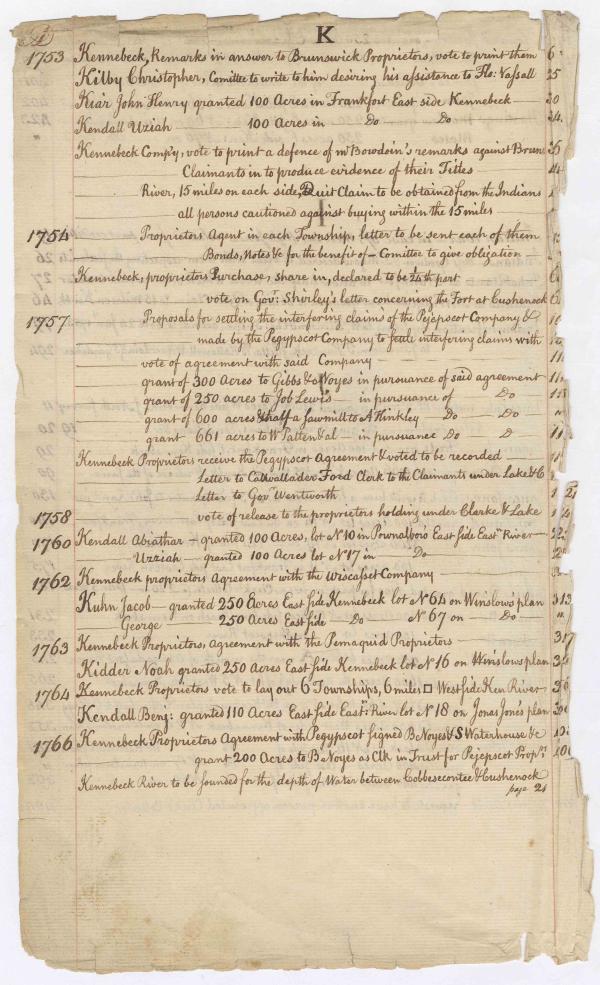 K
1753 Kennebeck, Remarks in answer to Brunswick Proprietors, vote to print them 6
Kilby Christopher, Comittee to write to him desiring his assistance to Flo: Vassall 25
Kiar John Henry granted 100 Acres in Frankfort East side Kennebeck 20
Kendall Uziah 100 Acres in Do Do Do 24
Kennebeck Compy, vote to print a defence of mr Bowdoin's remarks against Bruns 25
Claimants in to produce evidence of their Titles
River, 15 miles on each side, Quit Claim to be obtained from the Indians
all persons cautioned against buying within the 15 miles
1754 Proprietors Agent in each Township, letter to be sent each of them
Bonds, Notes &c for the benefit of - Comittee to give obligation
Kennebeck, proprietors Purchase, share in, declared to be 1/24th part 6
vote on Govr: Shirley's letter concerning the Fort at Cushenock 6
1757 Proposals for settling the interfering claims of the Pejepscot Company &c
made by the Pegypscot Company to settle interfering claims with
vote of agreement with said Company 11
grant of 300 Acres to Gibbs & Noyes in pursuance of said agreement 11
grant of 250 acres to Job Lewis - in pursuance of Do
grant of 600 acres & half a Sawmill to A Hinkley Do Do
grant 661 acres to W Patten & al - in pursuance Do D
Kennebeck Proprietors receive the Pegypscot Agreement & voted to be recorded
Letter to Calwallader Ford Clerk to the Claimants under Lake & C
Letter to Govr Wentworth
1758 vote of release to the proprietors holding under Clarke & Lake
1760 Kendall Abiathar - granted 100 Acres, lot No 10 in Pownalboro East side Eastn River
Uzziah - granted 100 Acres lot No 17 in Do
1762 Kennebeck proprietors Agreement with the Wiscasset Company
Kuhn Jacob - granted 250 Acres East side Kennebeck lot No 64 on Winslow's plan 313
George 250 Acres East side Do No 67 on Do "
1763 Kennebeck Proprietors, agreement with the Pemaquid Proprietors 317
Kidder Noah granted 250 Acres East side Kennebeck lot No 16 on Winslows plan
1764 Kennebeck Proprietors vote to lay out 6 Townships, 6 miles □ West side Ken River
Kendall Benj: granted 110 Acres East side Eastn: River lot No 18 on Jonas Jone's plan
1766 Kennebeck Proprietors Agreement with Pegypscot signed B Noyes & S Waterhouse &c
grant 200 Acres to B Noyes as Clk in Trust for Pejepscot Propri
Kennebeck River to be sounded for the depth of Water between Cobbesecontee & Cushenock
page 24